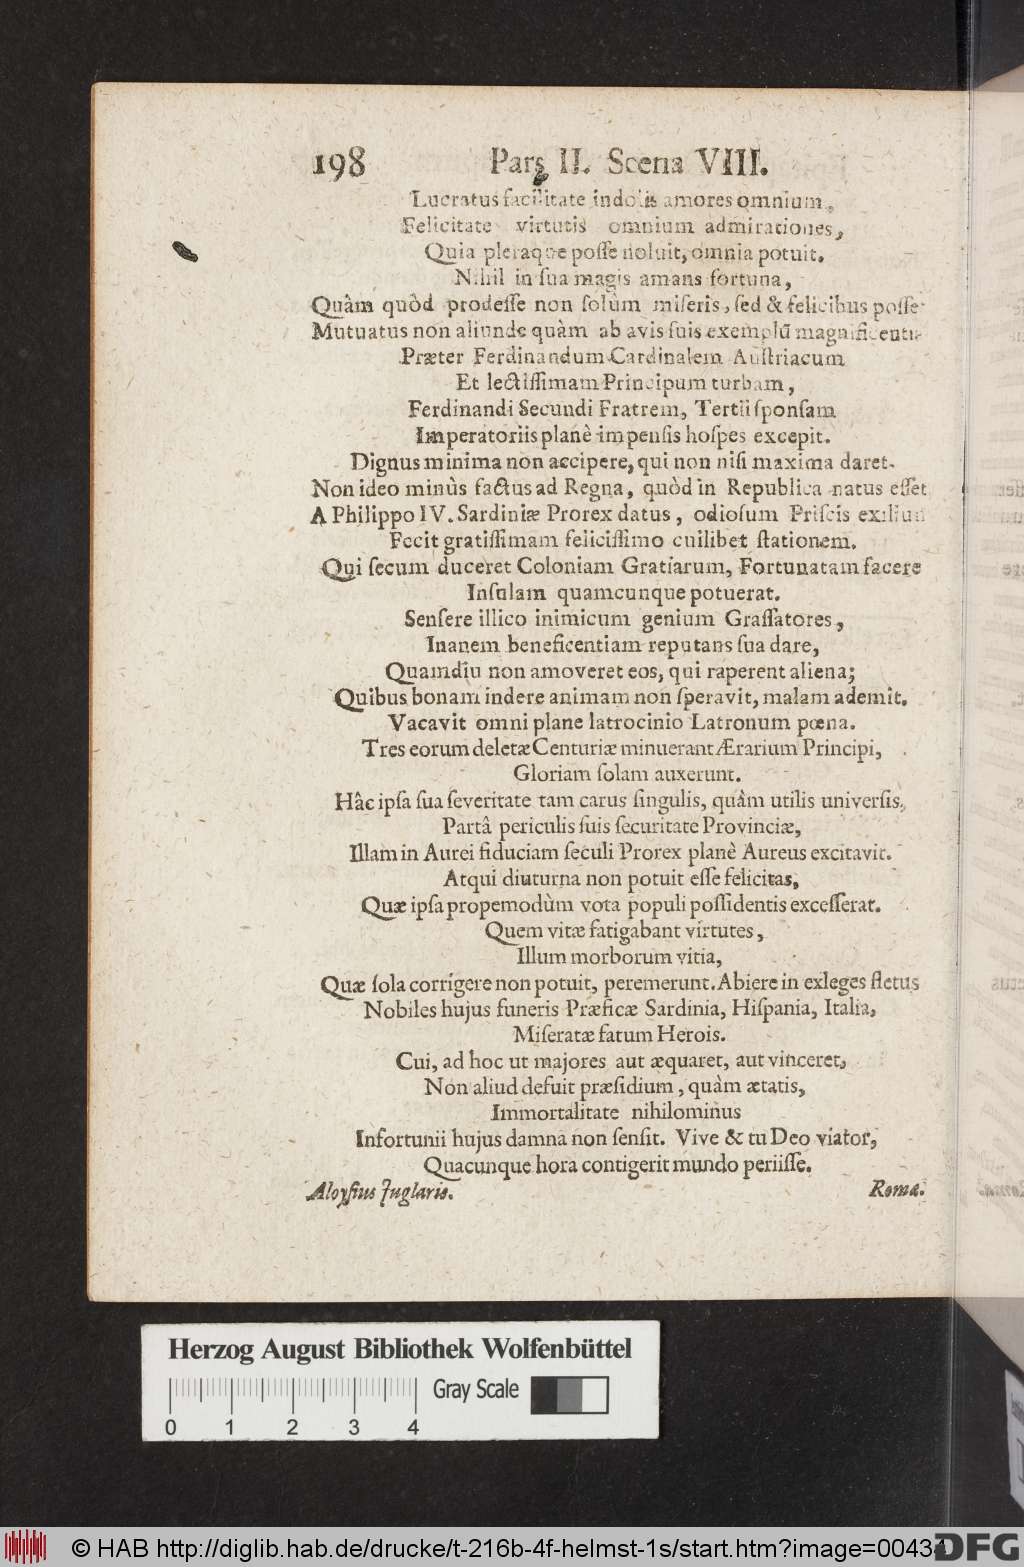 198 Pars II. Scena VIII.
Lucratus facilitate indolis amores omnium,
Felicitate virtutis omnium admirationes,
Quia pleraque posse noluit, omnia potuit.
Nihil in sua magis amans fortuna,
Quàm quòd prodesse non solùm miseris, sed & felicibus posset
Mutuatus non aliunde quàm ab avis suis exemplū magnificentiæ
Præter Ferdinandum Cardinalem Austriacum
Et lectissimam Principum turbam,
Ferdinandi Secundi Fratrem, Tertii sponsam
Imperatoriis planè impensis hospes excepit.
Dignus minima non accipere, qui non nisi maxima daret.
Non ideo minùs factus ad Regna, quòd in Republica natus esset
A Philippo IV. Sardiniæ Prorex datus, odiosum Priscis exilium
Fecit gratissimam felicissimo cuilibet stationem.
Qui secum duceret Coloniam Gratiarum, Fortunatam facere
Insulam quamcunque potuerat.
Sensere illico inimicum genium Grassatores,
Inanem beneficentiam reputans sua dare,
Quamdiu non amoveret eos, qui raperent aliena;
Quibus bonam indere animam non speravit, malam ademit.
Vacavit omni plane latrocinio Latronum pœna.
Tres eorum deletæ Centuriæ minuerant Ærarium Principi,
Gloriam solam auxerunt.
Hâc ipsa sua severitate tam carus singulis, quâm utilis universis,
Partâ periculis suis securitate Provinciæ,
Illam in Aurei fiduciam seculi Prorex planè Aureus excitavit.
Atqui diuturna non potuit esse felicitas,
Quæ ipsa propemodùm vota populi possidentis excesserat.
Quem vitæ fatigabant virtutes,
Illum morborum vitia,
Quæ sola corrigere non potuit, peremerunt. Abiere in exleges fletus
Nobiles hujus funeris Præficæ Sardinia, Hispania, Italia,
Miseratæ fatum Herois.
Cui, ad hoc ut majores aut æquaret, aut vinceret,
Non aliud defuit præsidium, quàm ætatis,
Immortalitate nihilominus
Infortunii hujus damna non sensit. Vive & tu Deo viator,
Quacunque hora contigerit mundo periisse.
Aloysius Juglaris. Romæ.
Herzog August Bibliothek Wolfenbüttel
Gray Scale
0 1 2 3 4
© HAB http://diglib.hab.de/drucke/t-216b-4f-helmst-1s/start.htm?image=00434
DFG